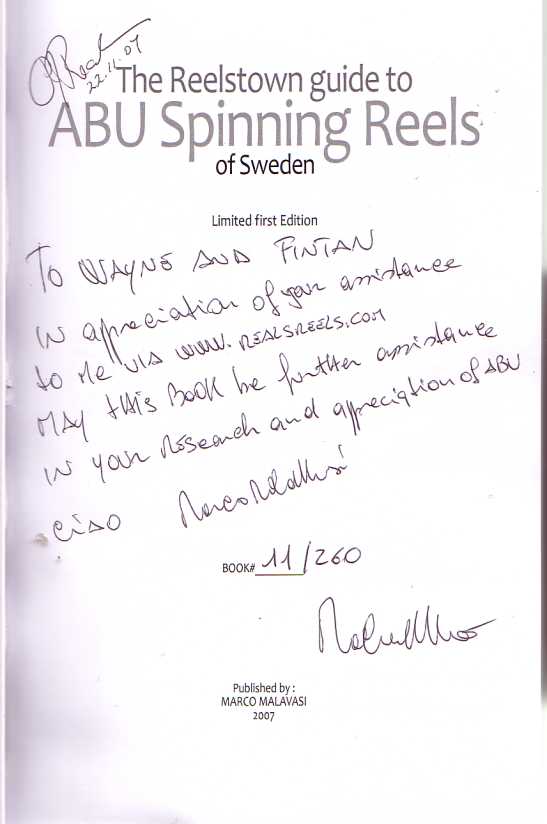 22.11.07
The Reelstown guide to
ABU Spinning Reels
of Sweden
Limited first Edition
To WAYNE AND FINTAN
IN appreciation of your assistance
to me VIA www.REALSREELS.COM
MAY this Book be further assistance
IN your Research and appreciation of ABU
Ciao Marco Malavasi
BOOK# 11/260
Published by :
MARCO MALAVASI
2007